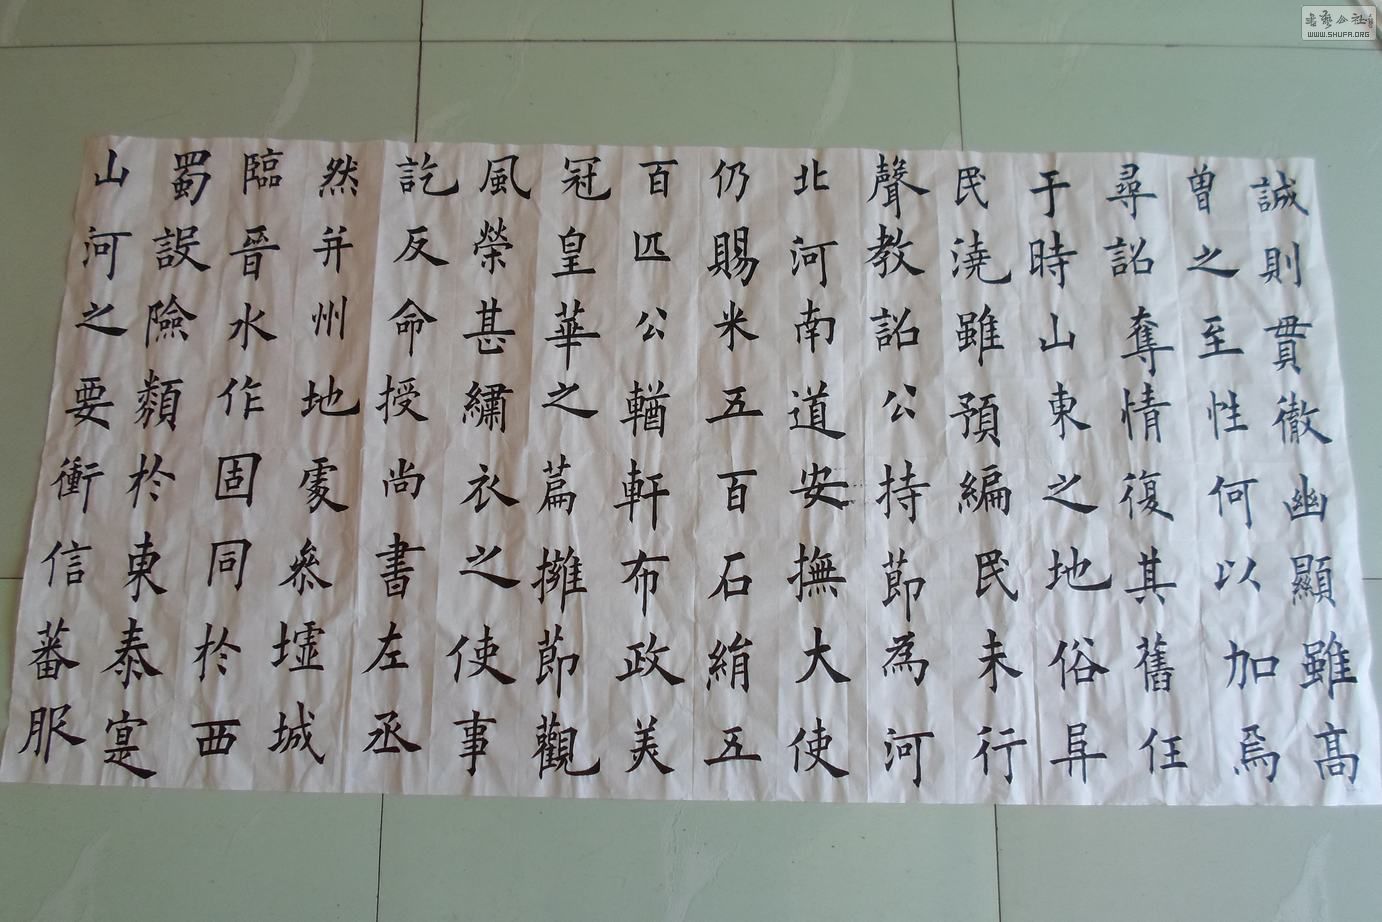 誠則貫徹幽顯雖高
曽之至性何以加焉
尋詔奪情復其舊任
于時山東之地俗阜
民澆雖預編民未行
聲教詔公持節為河
北河南道安撫大使
仍賜米五百石絹五
百匹公輶軒布政美
冠皇華之篇擁節觀
風榮甚繡衣之使事
訖反命授尚書左丞
然并州地處參墟城
臨晉水作固同於西
蜀設險類於東泰寔
山河之要衝信蕃服
書藝公社
WWW.SHUFA.ORG